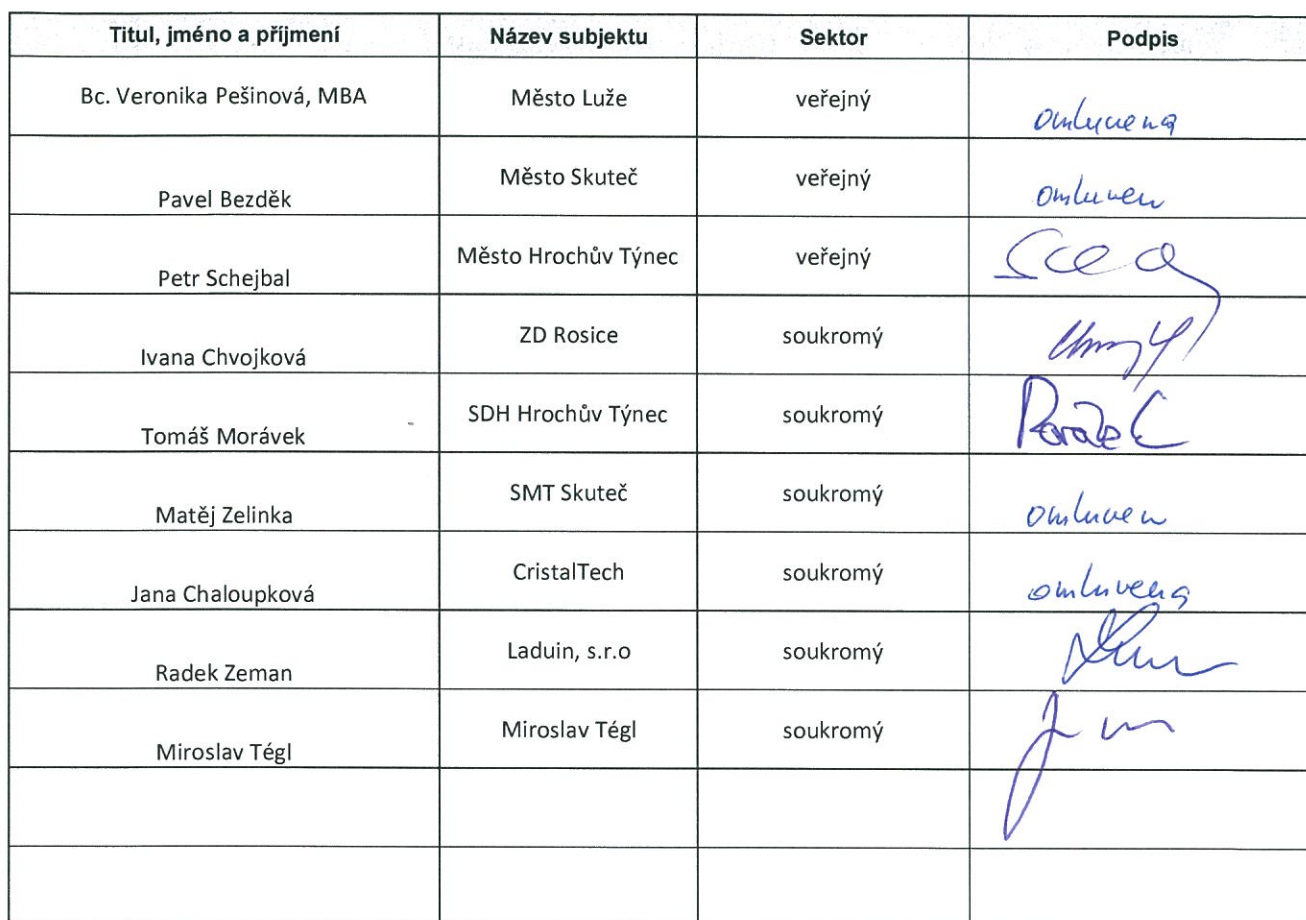 Titul, jméno a příjmení Název subjektu Sektor Podpis
Bc. Veronika Pešinová, MBA Město Luže veřejný omluvena
Pavel Bezděk Město Skuteč veřejný omluven
Petr Schejbal Město Hrochův Týnec veřejný
Ivana Chvojková ZD Rosice soukromý
Tomáš Morávek SDH Hrochův Týnec soukromý
Matěj Zelinka SMT Skuteč soukromý omluven
Jana Chaloupková CristalTech soukromý omluvena
Radek Zeman Laduin, s.r.o soukromý
Miroslav Tégl Miroslav Tégl soukromý